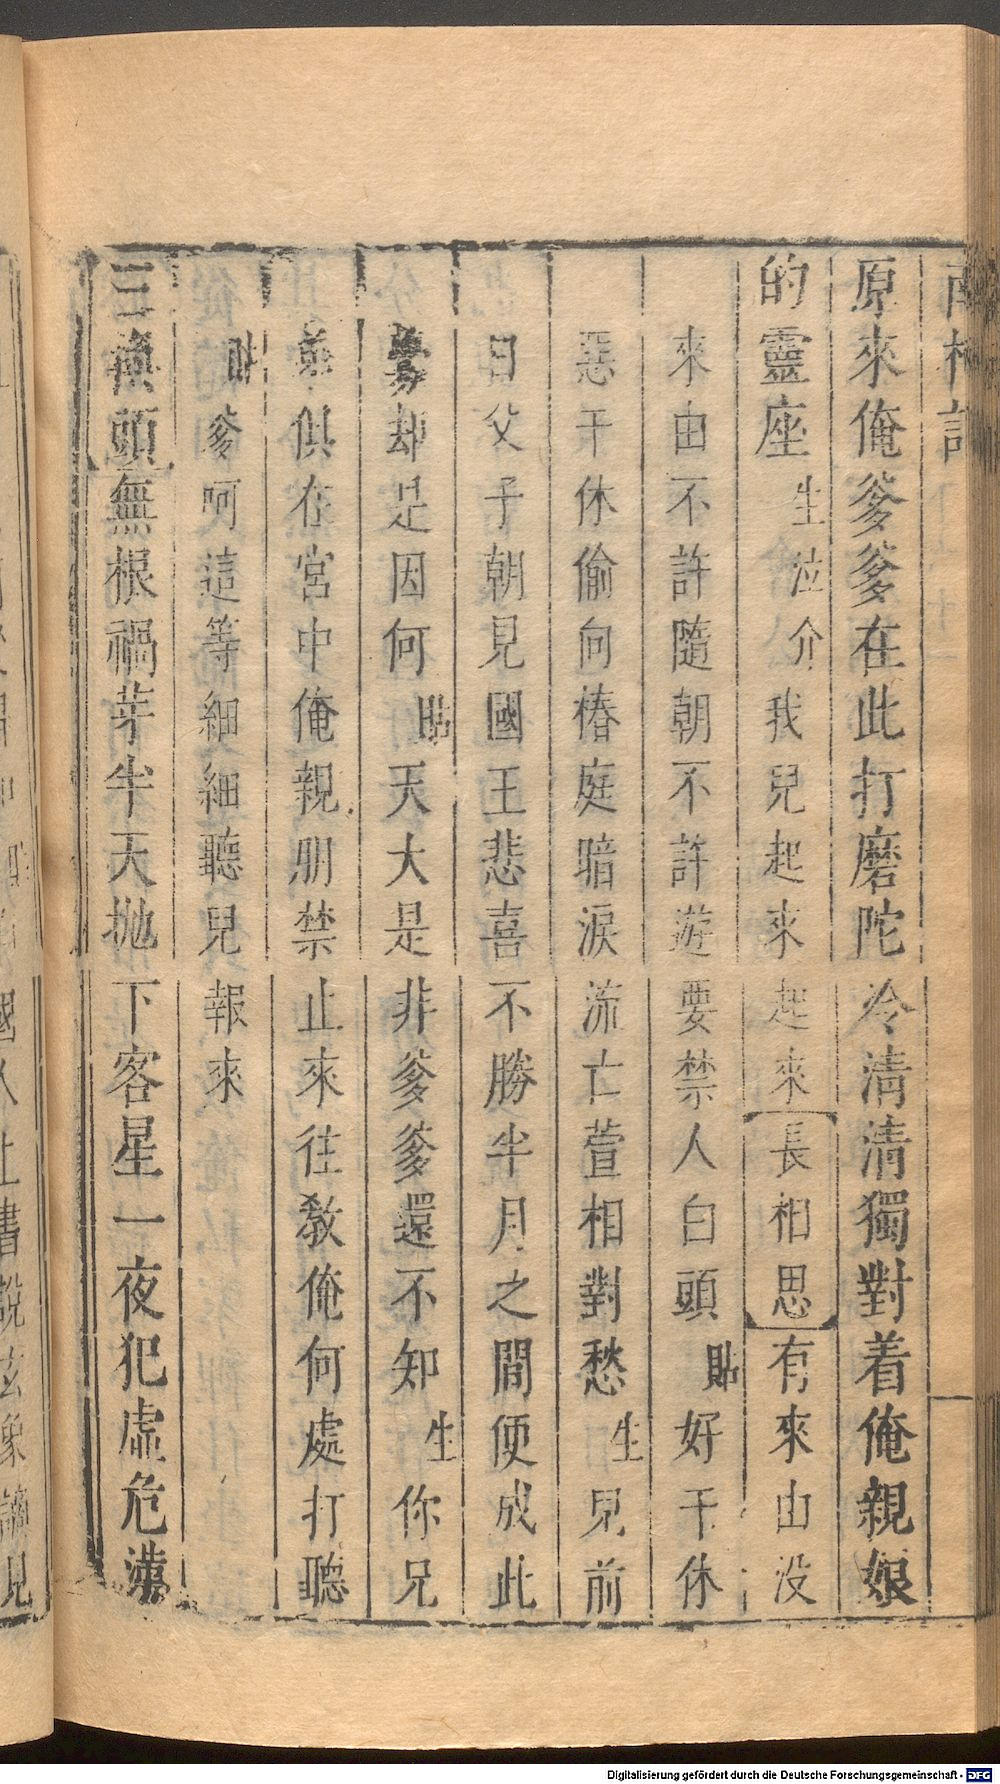 南柯記
原來俺爹爹在此打磨陀冷清清獨對着俺親娘
的靈座生泣介我兒起來起來長相思有來由没
來由不許隨朝不許遊要禁人白頭貼好干休
惡干休偷向椿庭暗淚流亡萱相對愁生兒前
日父子朝見國王悲喜不勝半月之間便成此
釁却是因何貼天大是非爹爹還不知生你兄
弟俱在宮中俺親朋禁止來往教俺何處打聽
貼爹呵這等細細聽兒報來
三換頭無根禍芽半天抛下客星一夜犯虛危漢
國人上書說玄象謫見
Digitalisierung gefördert durch die Deutsche Forschungsgemeinschaft - DFG